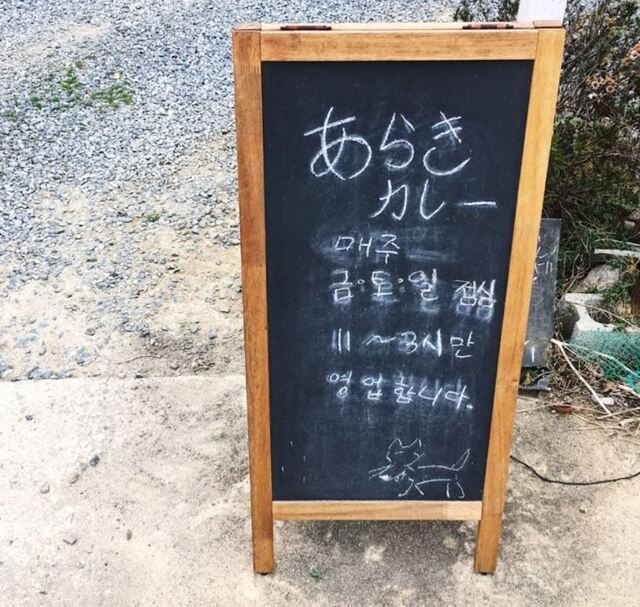 あらき
カレー
매주
금·토·일 점심
11~3시만
영업합니다.